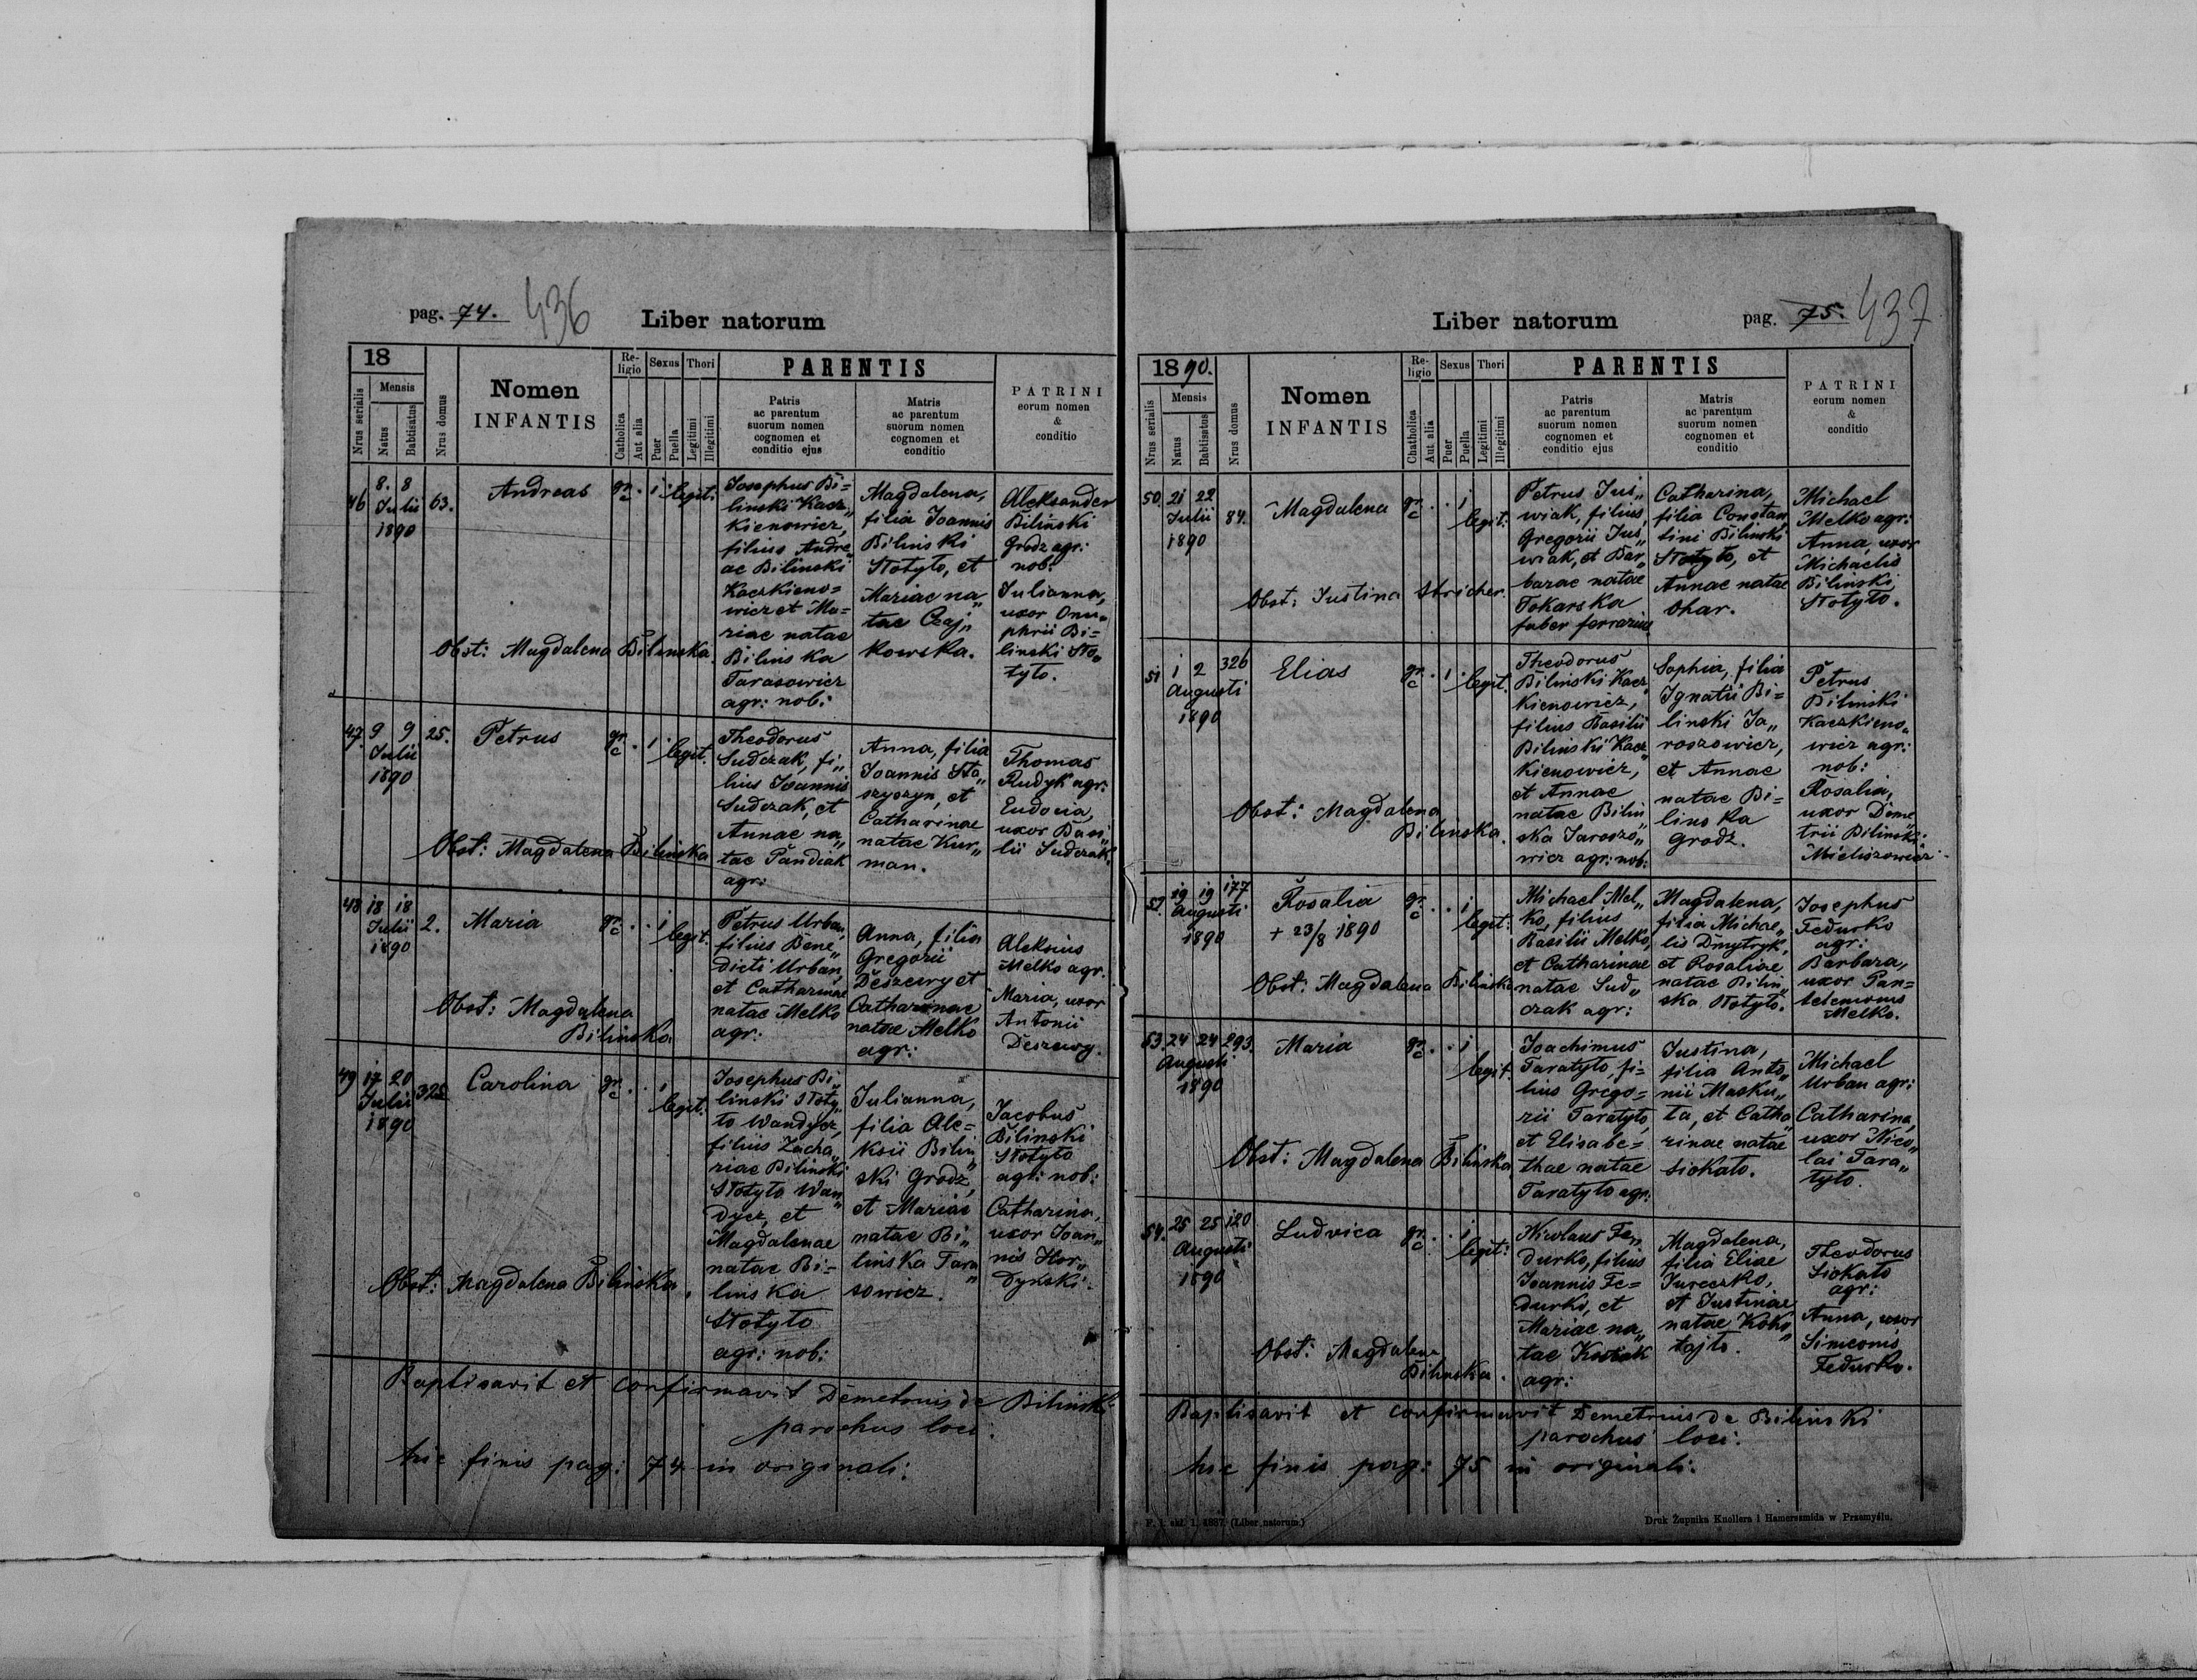 pag. 74. 436
Liber natorum
18
Nrus serialis
Mensis
Natus
Babtisatus
Nrus domus
Nomen
INFANTIS
Re-
ligio
Catholica
Aut alia
Sexus
Puer
Puella
Thori
Legitimi
Illegitimi
PARENTIS
Patris
ac parentum
suorum nomen
cognomen et
conditio ejus
Matris
ac parentum
suorum nomen
cognomen et
conditio
PATRINI
eorum nomen
&
conditio
46
8. 8
Julii
1890
63.
Andreas
gr. c. . i . legit.
Josephus Bi=
linski Kacz„
kienowicz,
filius Andre„
ae Bilinski
Kaczkieno=
wicz et Ma=
riae natae
Bilinska
Tarasowicz
agr: nob:
Magdalena,
filia Joannis
Bilinski
Stotyto, et
Mariae na„
tae Czaj„
kowska.
Aleksander
Biliński
Grodz agr:
nob:
Julianna,
uxor Onu„
phrii Bi=
linski Sto„
tyto.
Obst: Magdalena Bilinska.
47.
9 9
Julii
1890
25.
Petrus
gr. c. . i . legit.
Theodorus
Sudczak, fi„
lius Joannis
Sudczak, et
Annae na„
tae Pandiak
agr:
Anna, filia
Joannis Sta„
szyszyn, et
Catharinae
natae Kur„
man.
Thomas
Rudyk agr:
Eudocia,
uxor Basi„
lii Sudczak.
Obst: Magdalena Bilinska
48
18 18
Julii
1890
2.
Maria
gr. c. . . i legit.
Petrus Urban,
filius Bene„
dicti Urban,
et Catharinae
natae Melko
agr:
Anna, filia
Gregorii
Deszewy et
Catharinae
natae Melko
agr:
Aleksius
Melko agr.
Maria, uxor
Antonii
Deszewy.
Obst: Magdalena
Bilinska
49
17 20
Julii
1890
325
Carolina
gr. c. . . i legit.
Josephus Bi„
linski Stoty„
to Wandycz,
filius Zacha„
riae Bilinski
Stotyto Wan„
dycz, et
Magdalenae
natae Bi=
linska
Stotyto
agr: nob:
Julianna,
filia Ale=
ksii Bilin„
ski Grodz,
et Mariae
natae Bi„
linska Tara„
sowicz.
Jacobus
Bilinski
Stotyto
agr: nob:
Catharina,
uxor Joan„
nis Hor„
dynski.
Obst: Magdalena Bilinska.
Baptisavit et confirmavit Demetrius de Bilinski
parochus loci.
hic finis pag: 74 in originali:
Liber natorum
pag. 75. 437
1890.
Nrus serialis
Mensis
Natus
Babtisatus
Nrus domus
Nomen
INFANTIS
Re-
ligio
Chatholica
Aut alia
Sexus
Puer
Puella
Thori
Legitimi
Illegitimi
PARENTIS
Patris
ac parentum
suorum nomen
cognomen et
conditio ejus
Matris
ac parentum
suorum nomen
cognomen et
conditio
PATRINI
eorum nomen
&
conditio
50.
21 22
Julii
1890
84.
Magdalena
gr. c. . . i legit.
Petrus Jus„
wiak, filius
Gregorii Jus„
wiak, et Bar„
barae natae
Tokarska
faber ferrarius
Catharina,
filia Constan„
tini Bilinski
Stotyto, et
Annae natae
Ohar.
Michael
Melko agr:
Anna, uxor
Michaelis
Bilinski
Stotyto.
Obst: Justina Stricher.
51
1 2
Augusti
1890
326
Elias
gr. c. . i . legit.
Theodorus
Bilinski Kacz„
kienowicz,
filius Basilii
Bilinski Kacz„
kienowicz,
et Annae
natae Bilin„
ska Jaroszo„
wicz agr: nob:
Sophia, filia
Ignatii Bi=
linski Ja„
roszowicz,
et Annae
natae Bi=
linska
Grodz.
Petrus
Bilinski
Kaczkieno„
wicz agr:
nob:
Rosalia,
uxor Deme„
trii Bilinski
Micliszowicz.
Obst: Magdalena
Bilinska.
52.
19 19
Augusti
1890
177
Rosalia
+ 23/8 1890
gr. c. . . i legit.
Michael Mel„
ko, filius
Basilii Melko,
et Catharinae
natae Sud„
czak agr:
Magdalena,
filia Michae„
lis Dmytryk,
et Rosaliae
natae Bilin„
ska Stotyto.
Josephus
Fedurko
agr:
Barbara,
uxor Pan=
telemonis
Melko.
Obst: Magdalena Bilinska
53.
24 24
Augusti
1890
293.
Maria
gr. c. . . i legit.
Joachimus
Taratyto, fi=
lius Grego=
rii Taratyto,
et Elisabe=
thae natae
Taratyto agr:
Justina,
filia Anto„
nii Masku„
ta, et Catha„
rinae natae
Siokato.
Michael
Urban agr:
Catharina,
uxor Nico„
lai Tara„
tyto.
Obst: Magdalena Bilinska
54.
25 25
Augusti
1890
120
Ludvica
gr. c. . . i legit:
Nicolaus Fe„
durko, filius
Joannis Fe=
durko, et
Mariae na„
tae
agr:
Magdalena,
filia Eliae
Jureczko,
et Justinae
natae Koko„
tajto.
Theodorus
Siokato
agr:
Anna, uxor
Simeonis
Fedurko.
Obst: Magdalena
Bilinska.
Baptisavit et confirmavit Demetrius de Bilinski
parochus loci.
hic finis pag: 75 in originali.
1887. (Liber natorum.)
Druk Żupnika Knollera i Hamerszmida w Przemyślu.